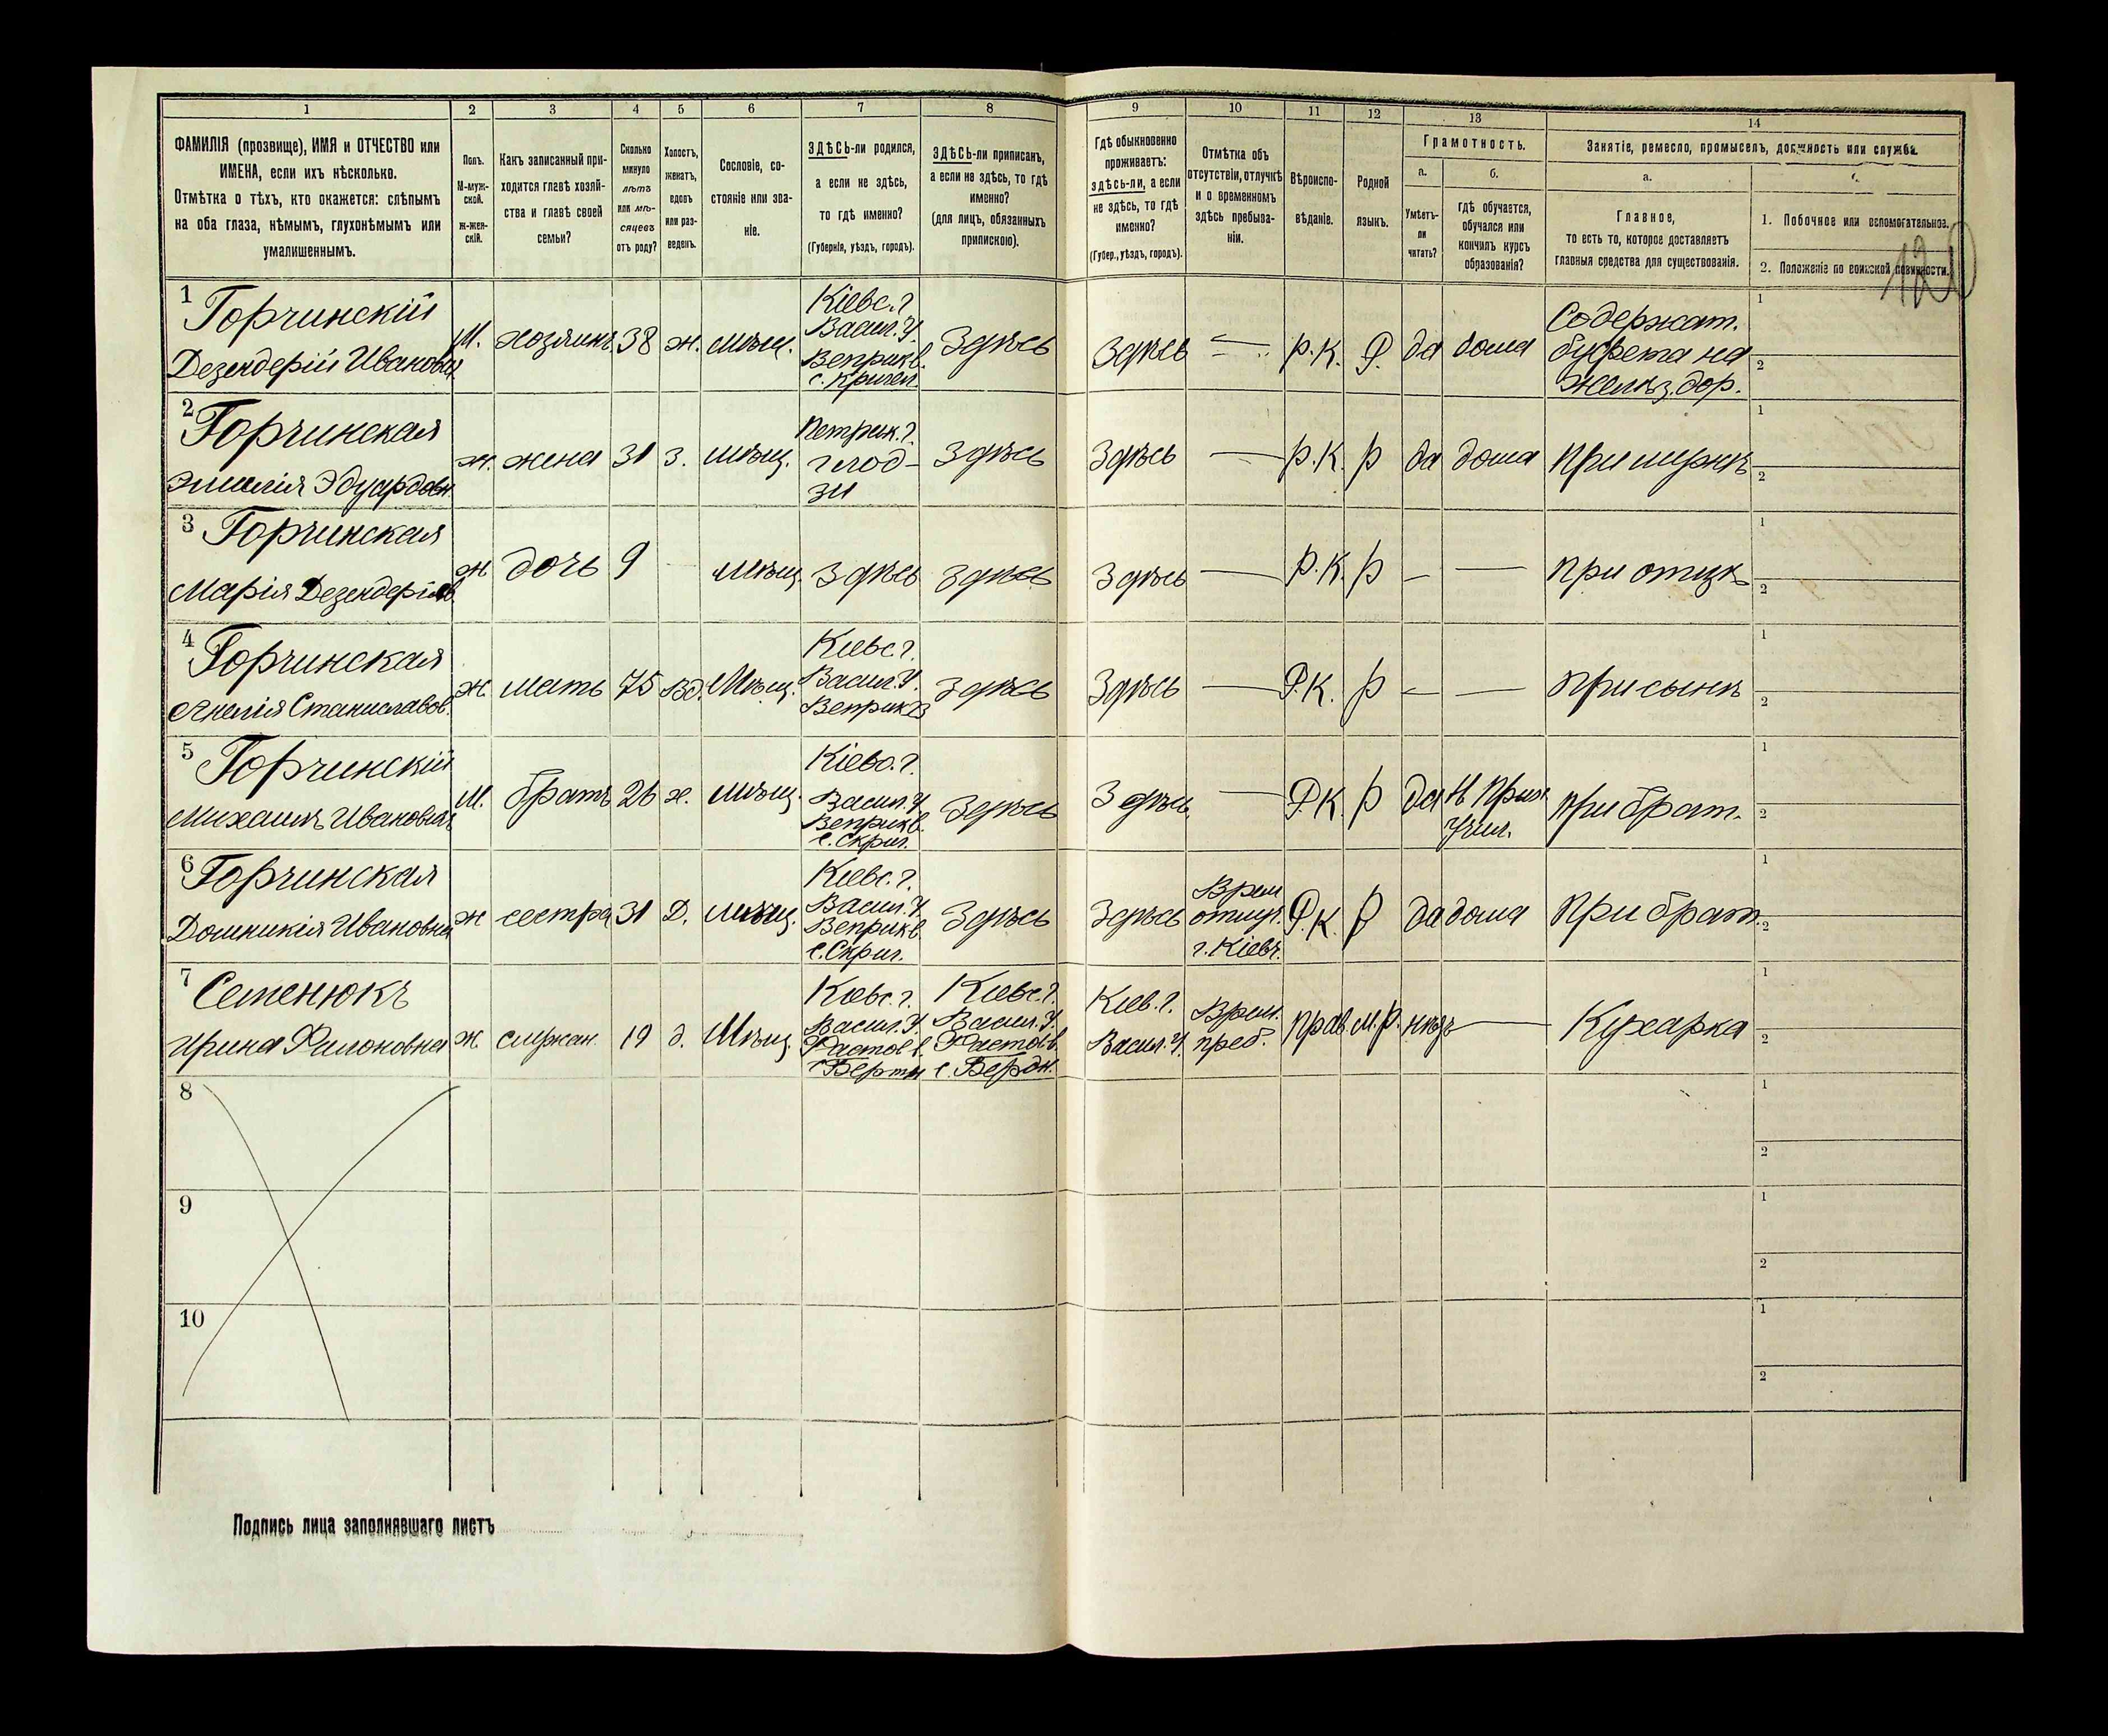 1 2 3 4 5 6 7 8 9 10 11 12 13 14
ФАМИЛІЯ (прозвище), ИМЯ и ОТЧЕСТВО или
ИМЕНА, если ихъ нѣсколько.
Отмѣтка о тѣхъ, кто окажется: слѣпымъ
на оба глаза, нѣмымъ, глухонѣмымъ или
умалишеннымъ.
Полъ.
М-муж-
ской.
Ж-жен-
скій.
Какъ записанный при-
ходится главѣ хозяй-
ства и главѣ своей
семьи?
Сколько
минуло
лѣтъ
или мѣ-
сяцевъ
отъ роду?
Холостъ,
женатъ,
вдовъ
или раз-
веденъ.
Сословіе, со-
стояніе или зва-
ніе.
ЗДѢСЬ-ли родился,
а если не здѣсь,
то гдѣ именно?
(Губернія, уѣздъ, городъ).
ЗДѢСЬ-ли приписанъ,
а если не здѣсь, то гдѣ
именно?
(для лицъ, обязанныхъ
припискою).
Гдѣ обыкновенно
проживаетъ:
здѣсь-ли, а если
не здѣсь, то гдѣ
именно?
(Губер., уѣздъ, городъ).
Отмѣтка объ
отсутствіи, отлучкѣ
и о временномъ
здѣсь пребыва-
ніи.
Вѣроиспо-
вѣданіе.
Родной
языкъ.
Грамотность.
а.
Умѣетъ-
ли
читать?
б.
гдѣ обучается,
обучался или
кончилъ курсъ
образованія?
Занятіе, ремесло, промыселъ, должность или служба.
а.
Главное,
то есть то, которое доставляетъ
главныя средства для существованія.
1. Побочное или вспомогательное.
2. Положеніе по воинской повинности.
1 Горчинскій
Дезендерій Ивановъ
М. хозяинъ 38 ж. мѣщ.
Кіевс. г.
Васил. У.
Веприк в.
Здѣсь Здѣсь — Р.К. Р. да дома
Содержат.
буфета на
желѣз. дор.
1
2
2 Горчинская
Эмилія Эдуардовн.
ж. жена 31 з. мѣщ.
Петрик. г.
г. Лод-
зи
Здѣсь Здѣсь — Р.К. Р да дома При мужѣ
1
2
3 Горчинская
Марія Дезендеріев
ж дочь 9 — мѣщ. Здѣсь Здѣсь Здѣсь — Р.К. Р — — При отцѣ
1
2
4 Горчинская
Анелія Станиславов.
ж. мать 75 вд. Мѣщ.
Кіевс. г.
Васил. У.
Веприк в
Здѣсь Здѣсь — Р.К. Р — — При сынѣ
1
2
5 Горчинскій
Михаилъ Ивановичъ
М. братъ 26 х. мѣщ.
Кіевс. г.
Васил. У
Веприк в.
с. Скриг.
Здѣсь Здѣсь — Р.К. Р да
Учил.
При брат.
1
2
6 Горчинская
Доминикія Ивановна
ж сестра 31 Д. мѣщ.
Кіевс. г.
Васил. У
Веприк в.
с. Скриг.
Здѣсь Здѣсь
Врем
отлуч.
г. Кіевъ.
Р.К. Р да дома При брат.
1
2
7 Семенюкъ
Ирина Филоновна
ж служан. 19 д. Мѣщ.
Кіевс. г.
Васил. У.
Фастов в.
Кіевс. г.
Васил. У.
Фастов в.
Кіев. г.
Васил. У.
Врем.
преб.
прав. м.р. нѣтъ — Кухарка
1
2
8
1
2
9
1
2
10
1
2
Подпись лица заполнявшаго листъ